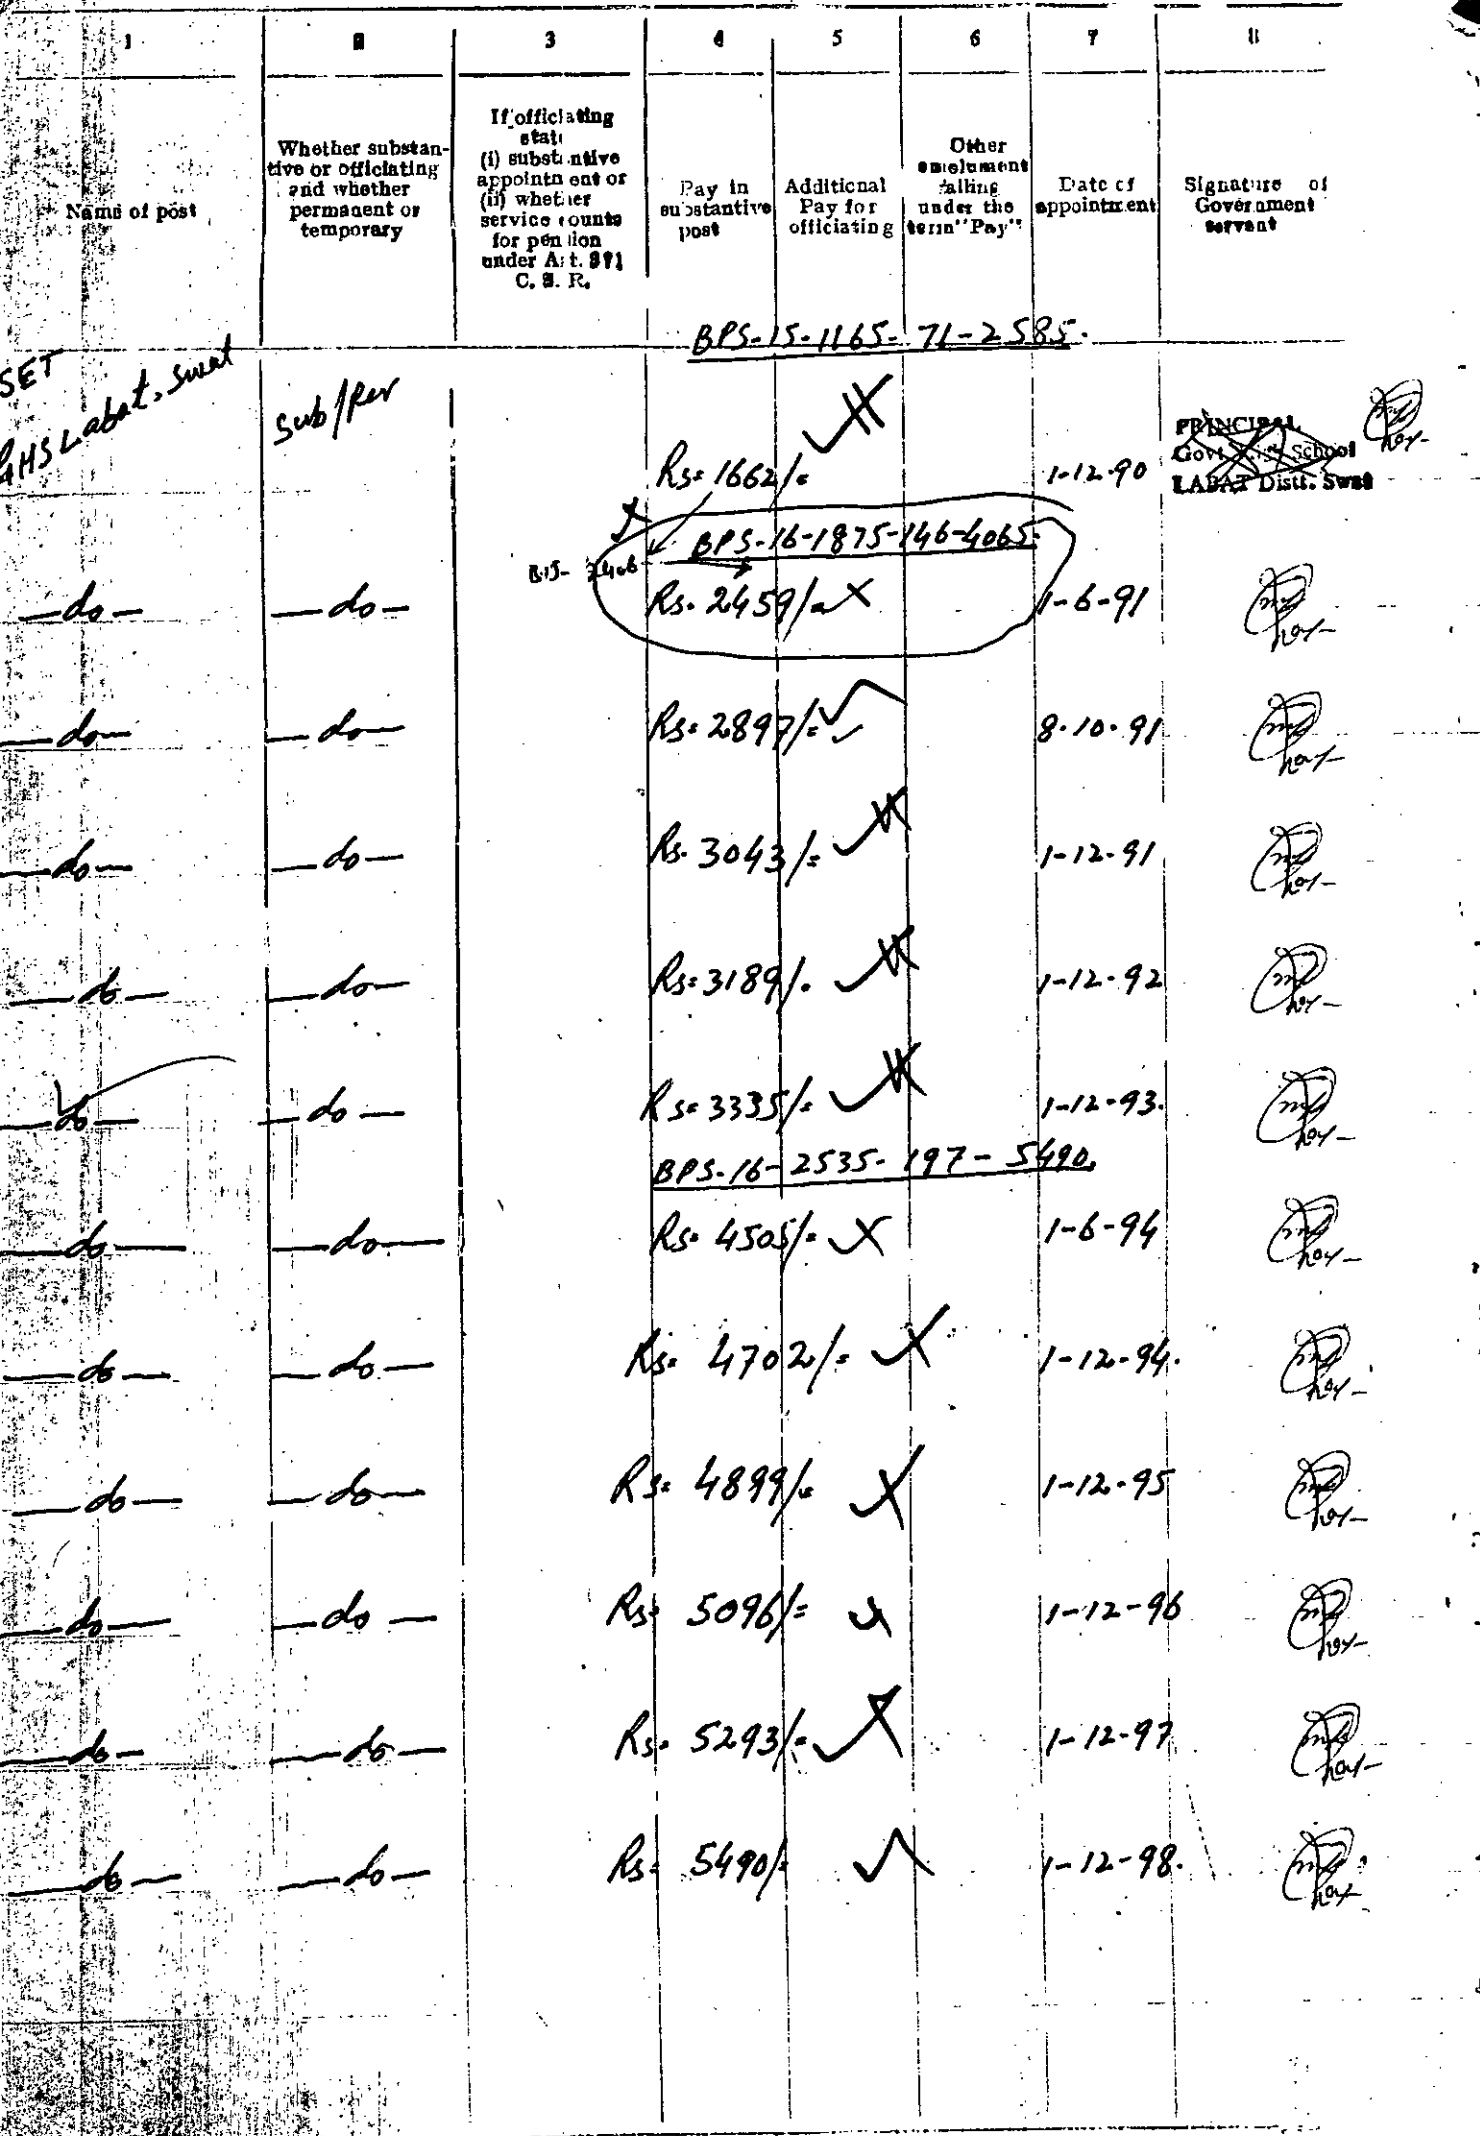 1 2 3 4 5 6 7 8
Name of post
Whether substan-
tive or officiating
and whether
permanent or
temporary
If officiating
state
(i) substantive
appointment or
(ii) whether
service counts
for pension
under Art. 371
C. S. R.
Pay in
substantive
post
Additional
Pay for
officiating
Other
emolument
falling
under the
term "Pay"
Date of
appointment
Signature of
Government
servant
BPS-15-1165-71-2585.
SET
GHS Labat, Swat
Sub/Per
Rs= 1662/=
1-12-90
PRINCIPAL
Govt High School
LABAT Distt. Swat
BPS-16-1875-146-4065.
B15- 2406
—do— —do— Rs. 2459/= 1-6-91
—do— —do— Rs= 2897/= 8.10.91
—do— —do— Rs. 3043/= 1-12-91
—do— —do— Rs= 3189/. 1-12-92
—do— —do— Rs= 3335/= 1-12-93.
BPS-16-2535-197-5490.
—do— —do— Rs= 4505/= 1-6-94
—do— —do— Rs. 4702/= 1-12-94.
—do— —do— Rs= 4899/= 1-12-95
—do— —do— Rs= 5096/= 1-12-96
—do— —do— Rs. 5293/= 1-12-97
—do— —do— Rs= 5490/= 1-12-98.